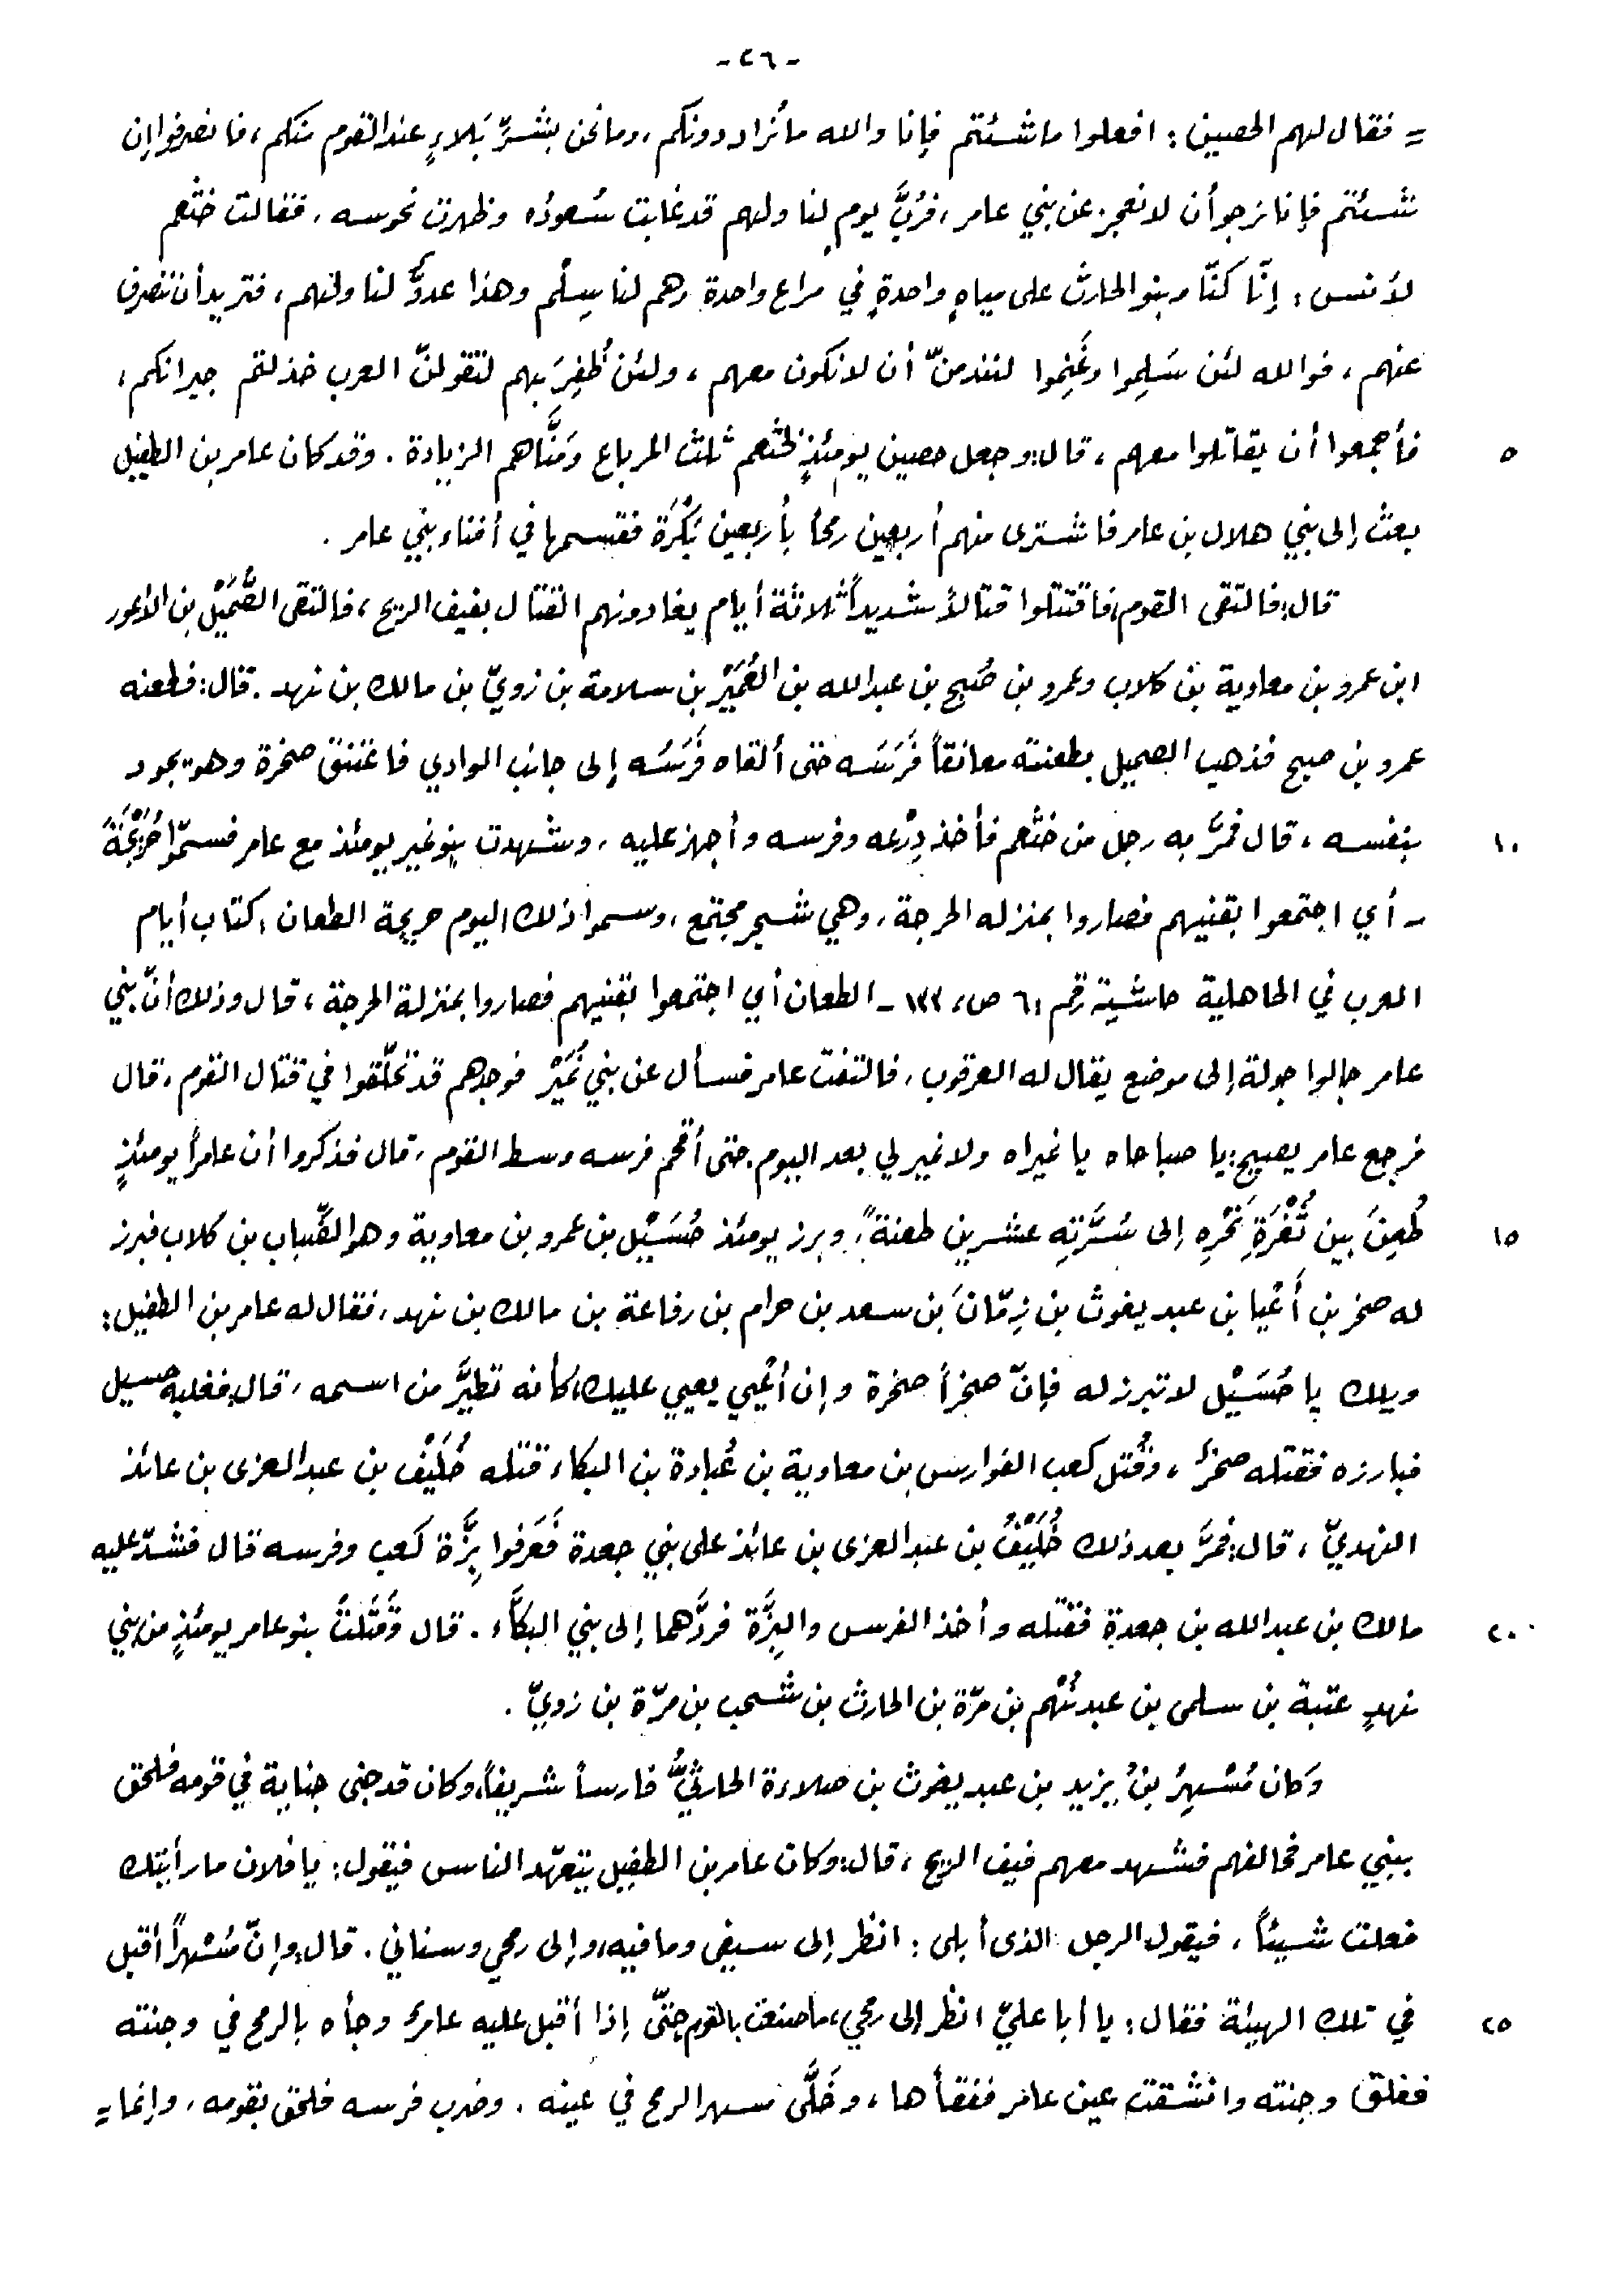 -٢٦-
= فقال لهم الحصين : افعلوا ما شئتم فإنا والله ما نُراد دونكم ، وما نحن بشرِّ بَلاءٍ عند القوم منكم ، فانصرفوا إن
شئتم فإنا نرجو أن لا نعجز عن بني عامر ، فرُبَّ يومٍ لنا ولهم قد غابت سُعودُه وظهرت نحوسه ، فقالت خثعم
لأنس : إنّا كنّا وبنو الحارث على مياهٍ واحدةٍ في مراع واحدة وهم لنا سِلْم وهذا عدوٌّ لنا ولهم ، فتريد أن ننصرف
عنهم ، فوالله لئن سَلِموا وغَنِموا لنندمنّ أن لا نكون معهم ، ولئن ظُفِرَ بهم لتقولنّ العرب خذلتم جيرانكم ،
٥ فأجمعوا أن يقاتلوا معهم ، قال : وجعل حصين يومئذٍ لخثعم ثلث المرباع ومَنَّاهم الزيادة . وقد كان عامر بن الطفيل
بعث إلى بني هلال بن عامر فاشترى منهم أربعين رمحاً بأربعين بَكْرَة فقسمها في أفناء بني عامر .
قال : فالتقى القوم ، فاقتتلوا قتالاً شديداً ثلاثة أيام يغادونهم القتال بفيف الريح ، فالتقى الصُّمَيْل بن الأعور
ابن عمرو بن معاوية بن كلاب وعمرو بن صُبيح بن عبد الله بن العُمَيْر بن سلامة بن زويّ بن مالك بن نهد . قال : فطعنه
عمرو بن صبيح فذهب الصميل بطعنته معانقاً فَرَسَه حتى ألقاه فَرَسُه إلى جانب الوادي فاعتنق صخرة وهو يجود
١٠ بنفسه ، قال فمرَّ به رجل من خثعم فأخذ دِرْعه وفرسه وأجهز عليه ، وشهدت بنو نمير يومئذ مع عامر فسمّوا حُرَيْجَةَ
ـ أي اجتمعوا بقنيهم فصاروا بمنزله الحرجة ، وهي شجر مجتمع ، وسموا ذلك اليوم حريجة الطعان ، كتاب أيام
العرب في الجاهلية حاشية رقم ٦١ ص، ١٣٣ ـ الطعان أي اجتمعوا بقنيهم فصاروا بمنزلة الحرجة ، قال وذلك أنّ بني
عامر جالوا جولة إلى موضع يقال له العرقوب ، فالتفت عامر فسأل عن بني نُمَيْر فوجدهم قد تخلّقوا في قتال القوم ، قال
فرجع عامر يصيح : يا صباحاه يا نميراه ولا نمير لي بعد اليوم ، حتى أقحم فرسه وسط القوم ، قال فذكروا أن عامراً يومئذٍ
١٥ طُعِنَ بين ثُغْرَةِ نَحْرِهِ إلى سُرَّتِهِ عشرين طعنةً ، وبرز يومئذ حُسَيْل بن عمرو بن معاوية وهو الضِّباب بن كلاب فبرز
له صخر بن أَعْيا بن عبد يغوث بن زِمّانَ بن سعد بن حرام بن رفاعة بن مالك بن نهد ، فقال له عامر بن الطفيل :
ويلك يا حُسَيْل لا تبرز له فإنّ صخراً صخرة وإن أعْيي يعيي عليك ، كأنه تطيَّر من اسمه ، قال : فغلبه حسيل
فبارزه فقتله صخرٌ ، وقُتل كعب الفوارس بن معاوية بن عُبادة بن البكاء قتله خُلَيْف بن عبد العزى بن عائذ
النهديّ ، قال : فمرَّ بعد ذلك خُلَيْفُ بن عبد العزى بن عائذ على بني جعدة فَعَرَفوا بِزَّة كعب وفرسه قال فشدّ عليه
٢٠ مالك بن عبد الله بن جعدة فقتله وأخذ الفرس والبِزَّة فردَّهما إلى بني البكَّاء . قال وقَتَلتْ بنو عامر يومئذٍ من بني
نهدٍ عتبة بن سلمى بن عبد نُهْم بن مرّة بن الحارث بن شحب بن مرّة بن زويّ .
وَكان مُسْهِرُ بنُ يزيد بن عبد يغوث بن صلاءة الحارثيُّ فارساً شريفاً ، وكان قد جنى جناية في قومه فلحق
ببني عامر فحالفهم فشهد معهم فيف الريح ، قال : وكان عامر بن الطفيل يتعهّد الناس فيقول : يا فلان ما رأيتك
فعلت شيئاً ، فيقول الرجل الذى أبلى : انظر إلى سيفي وما فيه ، وإلى رمحي وسناني . قال : وإنّ مُسْهراً أقبل
٢٥ في تلك الهيئة فقال : يا أبا عليّ انظر إلى رمحي ، ما صنعت بالقوم ، حتّى إذا أقبل عليه عامرٌ وجأه بالرمح في وجنته
ففلق وجنته وانشقت عين عامر ففقأها ، وخَلَّى مسهر الرمح في عينه . وضرب فرسه فلحق بقومه ، وإنما =